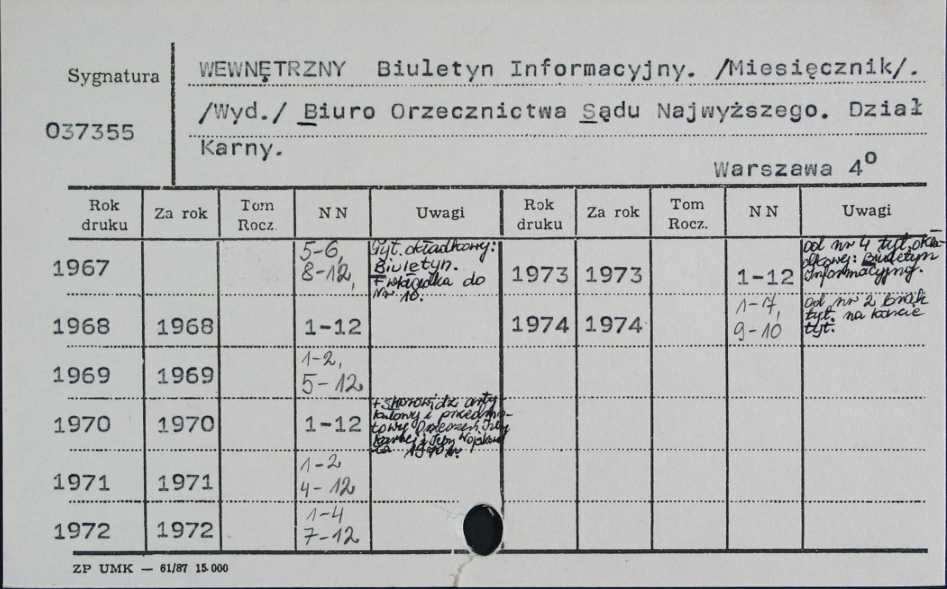 Sygnatura
037355
WEWNĘTRZNY Biuletyn Informacyjny. /Miesięcznik/.
/Wyd./ Biuro Orzecznictwa Sądu Najwyższego. Dział
Karny.
Warszawa 4º
Rok druku Za rok Tom Rocz. NN Uwagi Rok druku Za rok Tom Rocz. NN Uwagi
1967 5-6, 8-12,
Tyt. okładkowy:
Biuletyn.
+ wkładka do
Nr 10.
1973 1973 1-12
od nr 4 tyt. okła-
dkowy: Biuletyn
Informacyjny.
1968 1968 1-12
1974 1974 1-7, 9-10
od nr 2 brak
tyt. na karcie
tyt.
1969 1969 1-2, 5-12
1970 1970 1-12
+ skorowidz arty-
kułowy i przedmio-
towy Orzeczeń Izby
Karnej i Izby Wojskowej
za 1970 r.
1971 1971 1-2 4-12
1972 1972 1-4 7-12
ZP UMK — 61/87 15.000